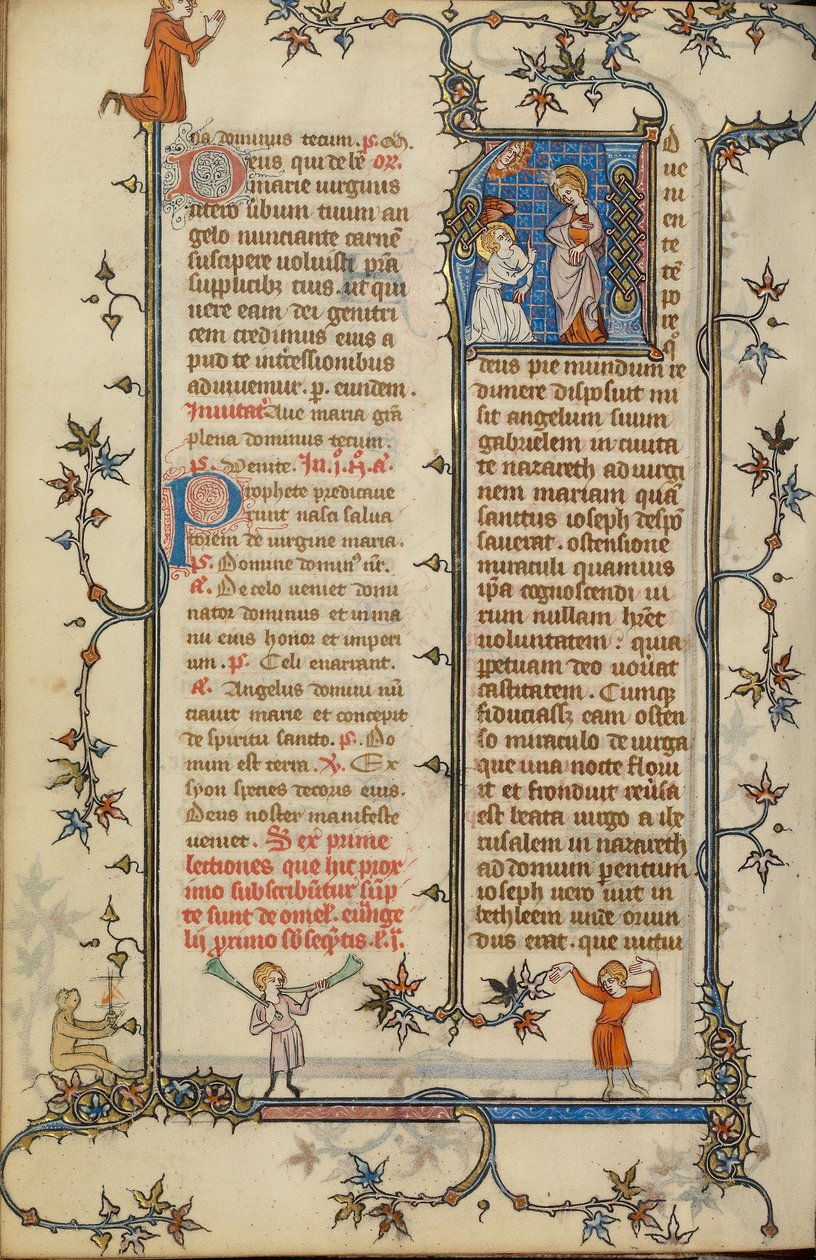 na dominus tecum. ps.
Deus qui de be or.
marie uirginis
utero ūbum tuum an
gelo nunciante carnē
suscipere uoluisti pꝛa
supplicibꝫ tuis. ut qui
uere eam dei genitri
cem credimus eius a
pud te intercessionibus
adiuuemur. p. eundem.
Inuitat Aue maria gra
plena dominus tecum.
ps. Venite. In .i. ꝶ. a.
Prophete predicaue
runt nasci salua
torem de uirgine maria.
ps. Domine dominꝰ nr̄.
a. De celo ueniet domi
nator dominus et in ma
nu eius honor et imperi
um. ps. Celi enarrant.
a. Angelus domini nū
ciauit marie et concepit
de spiritu sancto. ps. Do
mini est terra. ꝟ. Ex
syon species decoris eius.
Deus noster manifeste
ueniet. Sex prime
lectiones que hic prox
imo subscribūtur sūp
te sunt de omel. euāge
lii primo sb̄ seqntis. l. i.
A
d
ue
ni
en
te
tē
po
re
qͦ
deus pie mundum re
dimere disposuit mi
sit angelum suum
gabrielem in ciuita
te nazareth ad uirgi
nem mariam quā
sanctus ioseph despō
sauerat. ostensione
miraculi quamuis
ip̄a cognoscendi ui
rum nullam hr̄et
uoluntatem: quia
ꝑpetuam deo uouāt
castitatem. Cumqꝫ
fiduciassꝫ eam osten
so miraculo de uirga
que una nocte floru
it et fronduit reuersa
est beata uirgo a ihe
rusalem in nazareth
ad domum parentum
ioseph uero iuit in
bethleem unde oriun
dus erat. que nictui